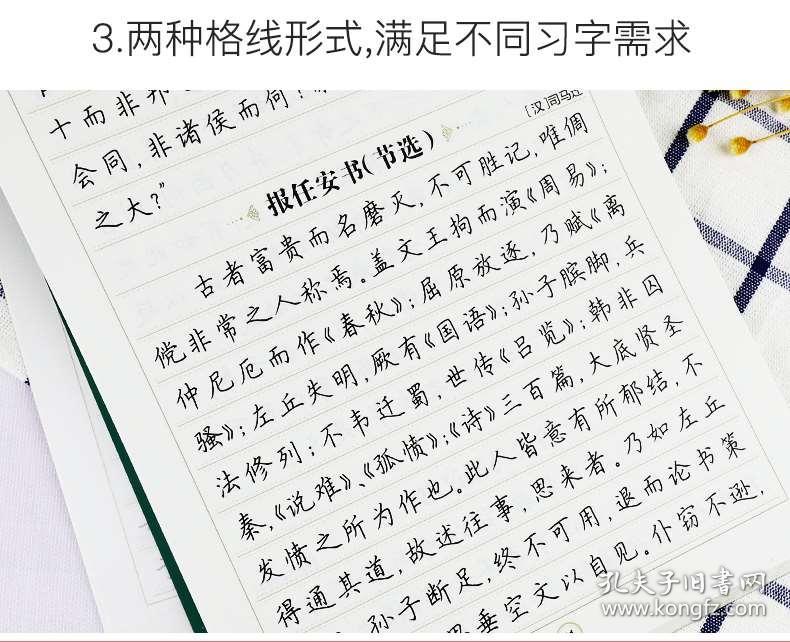 3.两种格线形式,满足不同习字需求
十而非邦
会同,非诸侯而何?
之大?”
[汉]司马迁
报任安书(节选)
古者富贵而名磨灭,不可胜记,唯倜
傥非常之人称焉。盖文王拘而演《周易》;
仲尼厄而作《春秋》;屈原放逐,乃赋《离
骚》;左丘失明,厥有《国语》;孙子膑脚,兵
法修列;不韦迁蜀,世传《吕览》;韩非囚
秦,《说难》、《孤愤》;《诗》三百篇,大底贤圣
发愤之所为作也。此人皆意有所郁结,不
得通其道,故述往事,思来者。乃如左丘
孙子断足,终不可用,退而论书策
垂空文以自见。仆窃不逊,
孔夫子旧书网
www.kongfz.com